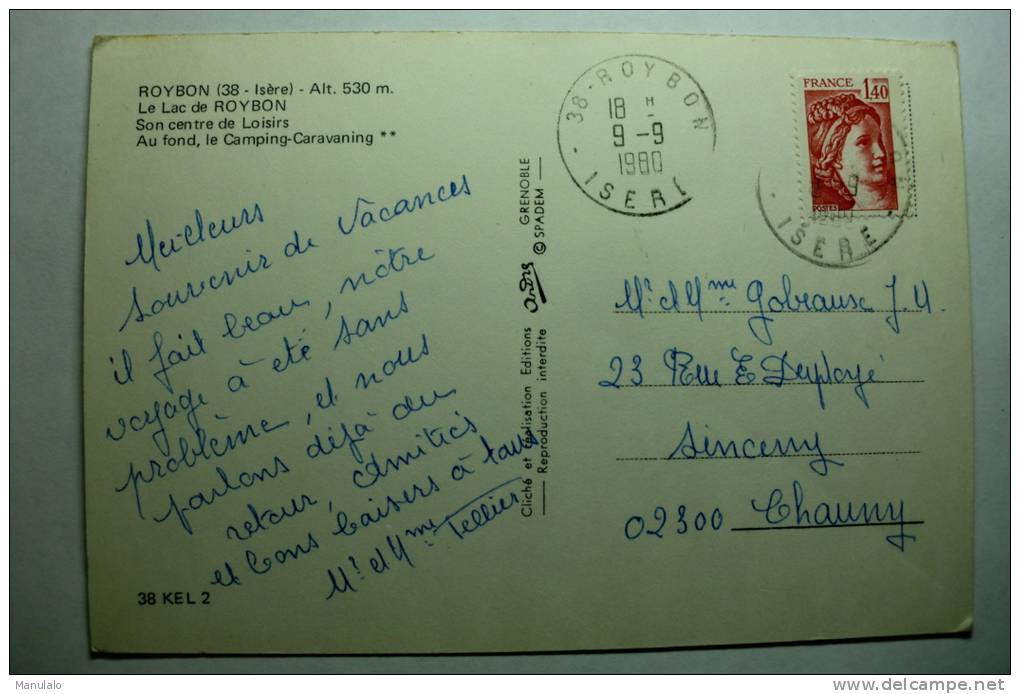 ROYBON (38 - Isère) - Alt. 530 m.
Le Lac de ROYBON
Son centre de Loisirs
Au fond, le Camping-Caravaning **
Meilleurs
souvenir de Vacances
il fait beau, nôtre
voyage à été sans
problème, et nous
parlons déjà du
retour, amitiés
et bons baisers à tous
Mr et Mme Tellier
38 KEL 2
Cliché et réalisation Editions André GRENOBLE
Reproduction interdite © SPADEM
38 - ROYBON
18 H
9 - 9
1980
ISERE
FRANCE
1,40
POSTES
9
1980
ISERE
Mr et Mme Gobeaux J.M.
23 Rue E Deployé
Sinceny
02300 Chauny
Manulalo
delcampe.net